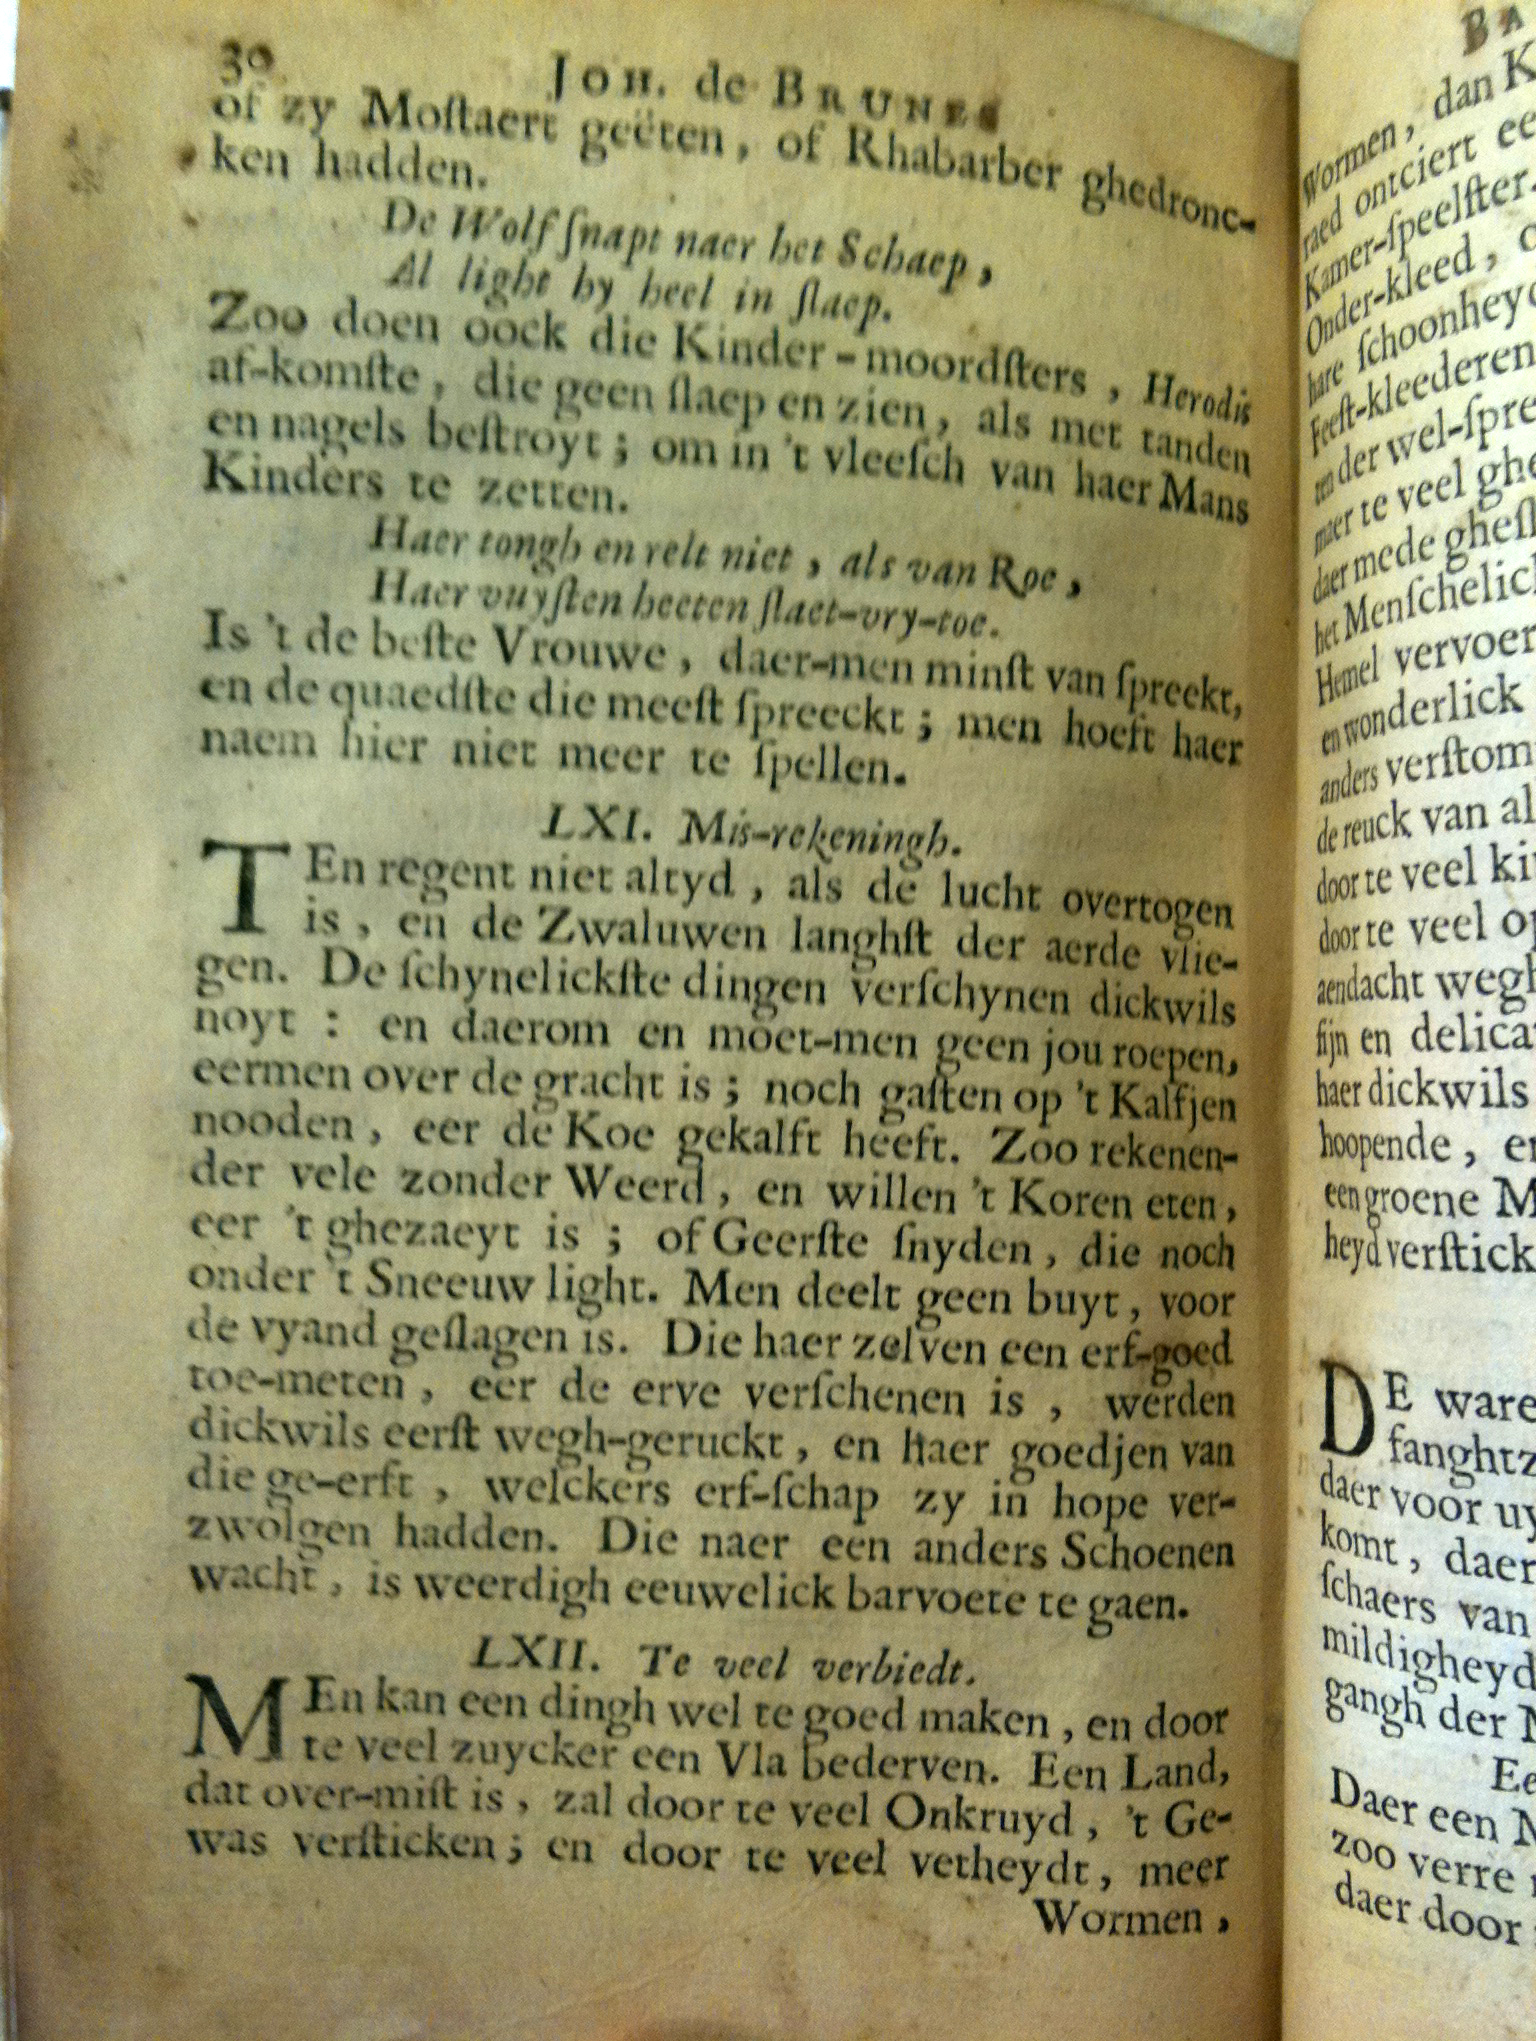 30
JOH. de BRUNES
of zy Moſtaert geëten, of Rhabarber ghedronc-
ken hadden.
De Wolf ſnapt naer het Schaep,
Al light hy heel in ſlaep.
Zoo doen oock die Kinder-moordſters, Herodis
af-komſte, die geen ſlaep en zien, als met tanden
en nagels beſtroyt; om in 't vleeſch van haer Mans
Kinders te zetten.
Haer tongh en relt niet, als van Roe,
Haer vuyſten heeten ſlaet-vry-toe.
Is 't de beſte Vrouwe, daer-men minſt van ſpreekt,
en de quaedſte die meeſt ſpreeckt; men hoeft haer
naem hier niet meer te ſpellen.
LXI. Mis-rekeningh.
TEn regent niet altyd, als de lucht overtogen
is, en de Zwaluwen langhſt der aerde vlie-
gen. De ſchynelickſte dingen verſchynen dickwils
noyt: en daerom en moet-men geen jou roepen,
eermen over de gracht is; noch gaſten op 't Kalfjen
nooden, eer de Koe gekalft heeft. Zoo rekenen-
der vele zonder Weerd, en willen 't Koren eten,
eer 't ghezaeyt is; of Geerſte ſnyden, die noch
onder 't Sneeuw light. Men deelt geen buyt, voor
de vyand geſlagen is. Die haer zelven een erf-goed
toe-meten, eer de erve verſchenen is, werden
dickwils eerſt wegh-geruckt, en haer goedjen van
die ge-erft, welckers erf-ſchap zy in hope ver-
zwolgen hadden. Die naer een anders Schoenen
wacht, is weerdigh eeuwelick barvoete te gaen.
LXII. Te veel verbiedt.
MEn kan een dingh wel te goed maken, en door
te veel zuycker een Vla bederven. Een Land,
dat over-miſt is, zal door te veel Onkruyd, 't Ge-
was verſticken; en door te veel vetheydt, meer
Wormen,
BA
Wormen, dan K
raed ontciert ee
Kamer-ſpeelſter.
Onder-kleed,
hare ſchoonhey
Feeſt-kleederen
der wel-ſpre
maer te veel ghe
daer mede gheſ
het Menſchelic
Hemel vervoer
en wonderlick
anders verſtom
de reuck van al
door te veel ki
door te veel op
aendacht wegh
fijn en delica
haer dickwils
hoopende, e
een groene M
heyd verſtick
DE ware
fanghtz
daer voor uy
komt, daer
ſchaers van
mildigheyd
gangh der
Ee
Daer een
zoo verre
daer door